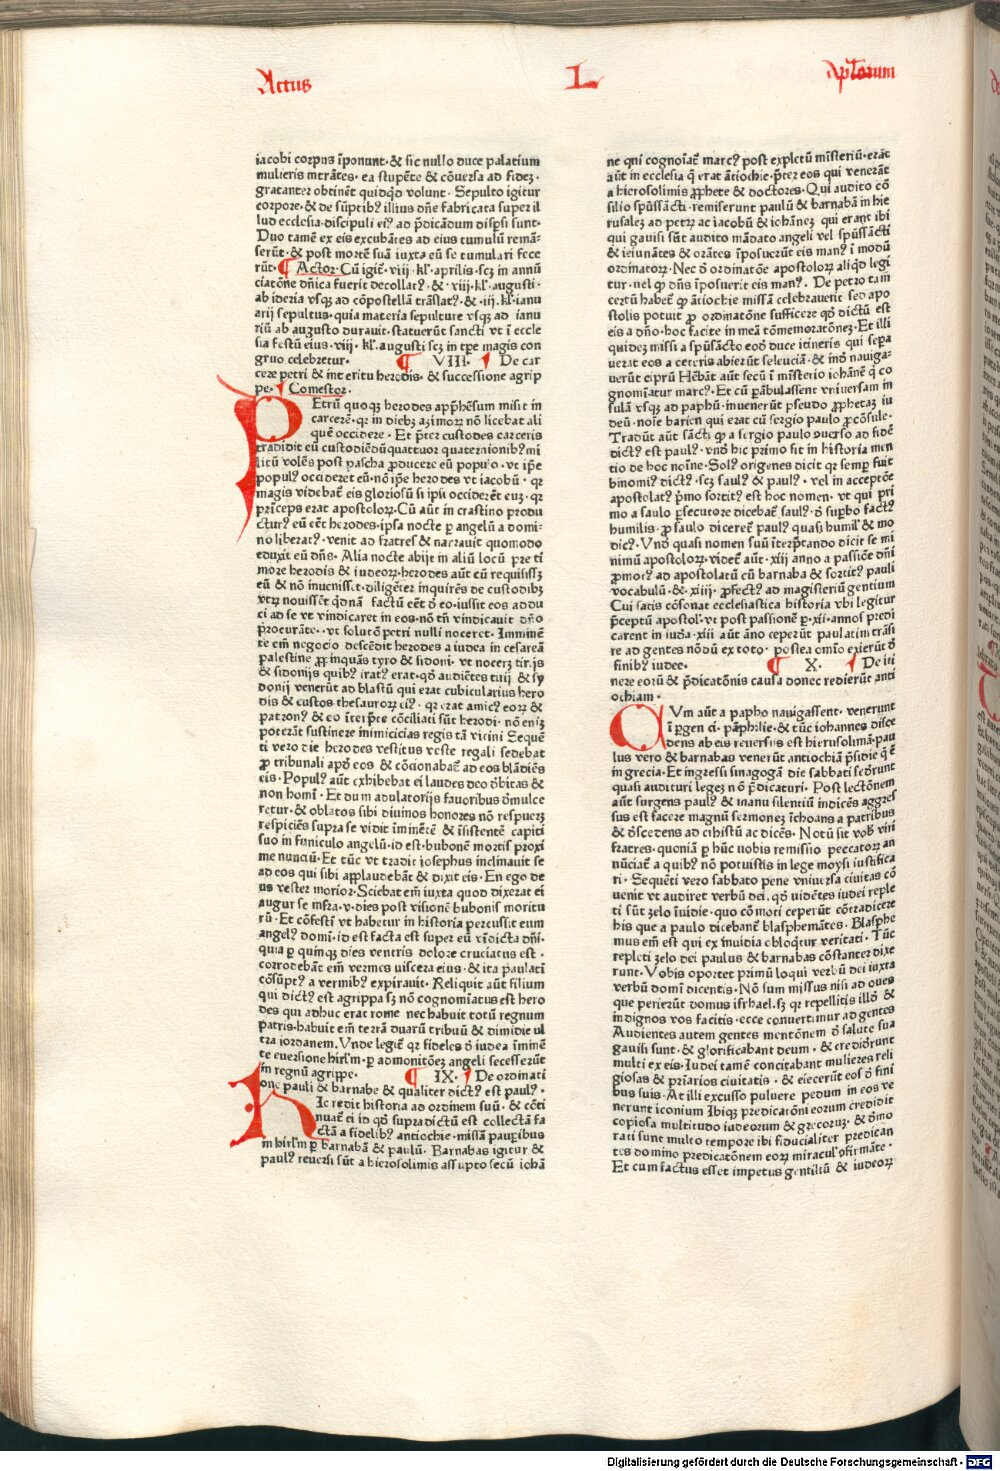 Actus L Apl'orum
iacobi corpus īponunt· & sic nullo duce palatium
mulieris ītrātes· ea stupēte & cōuersa ad fidez·
gratanter obtinēt quidqd volunt· Sepulto igitur
corpore· & de sūptibꝰ illius dn̄e fabricata super il
lud ecclesia· discipuli eiꝰ ad p̄dicādum disp̄si sunt·
Duo tamē ex eis excubātes ad eius tumulū remā-
serūt· & post mortē suā iuxta eū se tumulari fece
rūt· ¶ Actor· Cū igit᷑· viij· kl'· aprilis· scz in annū
ciatōne dn̄ica fuerit decollatꝰ· &· viij· kl'· augusti·
ab ideria vsqz ad cōpostellā trāslatꝰ· & ·iij· kl'· ianu
arij sepultus· quia materia sepulture vsqz ad ianu
riū ab augusto durauit· statuerūt sancti vt ī eccle
sia festū eius ·viij· kl'· augusti scz in tp̄e magis con
gruo celebretur· ¶ VIII· ¶ De car
cere petri & interitu herodis· & successione agrip
pe· ¶ Comestor·
PEtrū quoqz herodes app̄hēsum misit in
carcerē· qꝛ in diebz azimoꝝ nō licebat ali
quē occidere· Et p̄ter custodes carceris
tradidit eū custodiēdū quattuor quaternionibꝰ mi
litū volēs post pascha ꝓducere eū populo· vt ip̄e
populꝰ occideret eū· nō ip̄e herodes vt iacobū· qꝛ
magis videbat᷑ eis gloriosū si ipsi occiderēt euz· qꝛ
prīceps erat apostoloꝝ· Cū aūt in crastino produ
cturꝰ eū eēt herodes· ipsa nocte ꝑ angelū a domi-
no liberatꝰ· venit ad fratres & narrauit quomodo
eduxit eū dn̄s· Alia nocte abijt in aliū locū pre ti
more herodis & iudeoꝝ· herodes aūt cū requisissz
eū & nō inuenisset· diligēter inquirēs de custodibz
vtrz nouissēt qd nā factū eēt ꝺ eo· iussit eos addu
ci ad se vt vindicaret in eos· nō tn̄ vindicauit dn̄o
procurāte·· vt solutō petri nulli noceret· Imminē
te em̄ negocio descēdit herodes a iudea in cesareā
palestine ꝓpinquās tyro & sidoni· vt nocerz tirijs
& sidonijs quibꝰ iratꝰ erat· qd audiētes tirij & sy
donij venerūt ad blastū qui erat cubicularius hero
dis & custos thesauroꝝ eiꝰ· qꝛ erat amicꝰ eoꝝ &
patronꝰ & eo īterp̄te cōciliati sūt herodi· nō eniz
poterāt sustinere inimicicias regis tā vicini Sequē
ti vero die herodes vestitus veste regali sedebat
ꝓ tribunali apd eos & cōcionabat᷑ ad eos blādiēs
eis· Populꝰ aūt exhibebat ei laudes deo ꝺbitas &
non homī· Et dum adulatorijs fauoribus ꝺmulce
retur· & oblatos sibi diuinos honores nō respuerz
respiciēs supra se vidit īminētē & īsistentē capiti
suo in funiculo angelū· id est· bubonē mortis proxi
me nunciū· Et tūc vt tradit iosephus inclinauit se
ad eos qui sibi applaudebāt & dixit eis· En ego de
us vester morior· Sciebat em̄ iuxta quod dixerat ei
augur se infra· v· dies post visionē bubonis moritu
rū· Et cōfestī vt habetur in historia percussit eum
angelꝰ domī· id est facta est super eū vīdicta dn̄i·
quia ꝑ quinqz dies ventris dolore cruciatus est·
corrodebāt em̄ vermes viscera eius· & ita paulatī
cōsūptꝰ a vermibꝰ expirauit· Reliquit aūt filium
qui dictꝰ est agrippa sz nō cognomīatus est hero
des qui adhuc erat rome nec habuit totū regnum
patris· habuit em̄ terrā duarū tribuū & dimidie ul
tra iordanem· Vnde legit᷑ qꝛ fideles ꝺ iudea īminē
te euersione hirl'm· ꝑ admonitōez angeli secesserūt
in regnū agrippe· ¶ IX· ¶ De ordinati
one pauli & barnabe & qualiter dictꝰ est paulꝰ·
HIc redit historia ad ordinem suū· & cōti
nuat᷑ ei id qd supradictū est collectā fa
ctā a fidelibꝰ antiochie· missā pauꝑibus
in hirl'm ꝑ barnabā & paulū· Barnabas igitur &
paulꝰ reuersi sūt a hierosolimis assupto secū iohā
ne qui cognoīat᷑ marcꝰ post expletū mīsteriū· erāt
aūt in ecclesia q̄ erat ātiochie· p̄ter eos qui venerāt
a hierosolimis ꝓphete & doctores· Qui audito cō
silio spūssācti· remiserunt paulū & barnabā in hie
rusalez ad petrz ac iacobū & iohānez qui erant ibi
qui gauisi sūt audito mādato angeli vel spūssācti
& ieiunātes & orātes īposuerūt eis manꝰ ī modū
ordinatoꝝ· Nec ꝺ ordinatōe apostoloꝝ aliqd legi
tur· nel qꝫ dn̄s īposuerit eis manꝰ· De petro tam
certū habet᷑ qꝫ ātiochie missā celebrauerit sed apo
stolis potuit ꝓ ordinatōne sufficere qd dictū est
eis a dn̄o· hoc facite in meā cōmemoratōnez· Et illi
quidez missi a spūsācto eod duce itineris qui sepa
uerat eos a ceteris abierūt seleuciā· & īnd nauiga-
uerūt ciprū Hēbāt aūt secū ī mīsterio iohānē q̄ co
gnomīatur marcꝰ· Et cū ꝑābulassent vniuersam in
sulā vsqz ad paphū· inuenerūt pseudo ꝓphetaz iu
deū· noīe barieu qui erat cū sergio paulo ꝓcōsule·
Tradūt aūt sācti qꝫ a sergio paulo ꝯuerso ad fidē
dictꝰ est paulꝰ· vnd hic primo fit in historia men
tio de hoc noīne· Solꝰ origenes dicit qꝛ semꝑ fuit
binomiꝰ dictꝰ· scz saulꝰ & paulꝰ· vel in acceptōe
apostolatꝰ p̄mo sortitꝰ est hoc nomen· vt qui pri
mo a saulo ꝑsecutore dicebat᷑ saulꝰ· ꝺ supbo factꝰ
humilis· ꝓ saulo diceret᷑ paulꝰ quasi humil' & mo
dicꝰ· Vnd quasi nomen suū īterp̄tando dicit se mi
nimū apostoloꝝ· videt᷑ aūt· xiij anno a passiōe dn̄i
ꝓmotꝰ ad apostolatū cū barnaba & sortitꝰ pauli
vocabulū· &· xiiij· ꝓfectꝰ ad magisteriū gentium
Cui satis cōsonat ecclesiastica historia vbi legitur
p̄ceptū apostol'· vt post passionē ꝑ· xij· annos predi
carent in iudea· xiij aūt āno ceperūt paulatim trāsi
re ad gentes nōdū ex toto· postea omīo exierūt ꝺ
finibꝰ iudee· ¶ X· ¶ De iti
nere eorū & p̄dicatōnis causa donec redierūt anti
ochiam·
CVm aūt a papho nauigassent· venerunt
ī pergen ci. pāphilie· & tūc iohannes disce
dens ab eis reuersus est hierusolimā· pau
lus vero & barnabas venerūt antiochiā p̄sidie q̄ ē
in grecia· Et ingressi sinagogā die sabbati sedrunt
quasi audituri legez nō p̄dicaturi· Post lectōnem
aūt surgens paulꝰ & manu silentiū indicēs aggres
sus est facere magnū sermonez īchoans a patribus
& ꝺscedens ad cihistū ac dicēs· Notū sit vob' viri
fratres· quoniā ꝑ hūc uobis remissio peccatoꝝ an
nūciat᷑ a quibꝰ nō potuistis in lege moysi iustifica
ri· Sequēti vero sabbato pene vniuersa ciuitas cō
uenit vt audiret verbū dei· qd vidētes iudei reple
ti sūt zelo īuidie· quo cōmoti ceperūt cōtradicere
his que a paulo dicebant᷑ blasphemātes· Blasphe
mus em̄ est qui ex īnuidia obloq̄tur veritati· Tūc
repleti zelo dei paulus & barnabas cōstanter dixe
runt· Vobis oportet primū loqui verbū dei iuxta
verbū domī dicentis· Nō sum missus nisi ad oues
que perierūt domus isrhael· sz qꝛ repellitis illd &
indignos vos facitis· ecce conuertimur ad gentes
Audientes autem gentes mentōnem ꝺ salute sua
gauisi sunt· & glorificabant deum· & credidrunt
multi ex eis· Iudei tamē concitabant mulieres reli
giosas & pr̄iarios ciuitatis · & eiecerūt eos ꝺ fini
bus suis· At illi excusso puluere pedum in eos ve
nerunt iconium Ibiqz predicatōni eorum credidit
copiosa multitudo iudeorum & grecoruz· & ꝺmo
rati sunt multo tempore ibi fiducialiter predican
tes domino predicatōnem eoꝝ miracul' ꝯfirmāte·
Et cum factus esset impetus gentiliū & iudeoꝝ
Digitalisierung gefördert durch die Deutsche Forschungsgemeinschaft - DFG